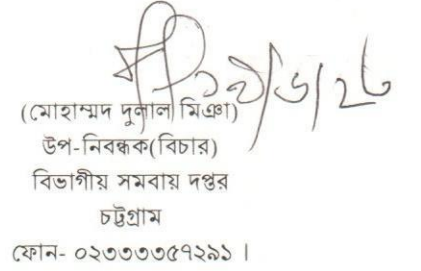 (মোহাম্মদ দুলাল মিঞা)
উপ-নিবন্ধক(বিচার)
বিভাগীয় সমবায় দপ্তর
চট্টগ্রাম
ফোন- ০২৩৩৩৩৫৭২৯১ ।